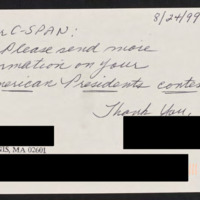 8/24/99
r C-SPAN:
Please send more
ormation on your
merican Presidents contes
Thank You,
NIS, MA 02601